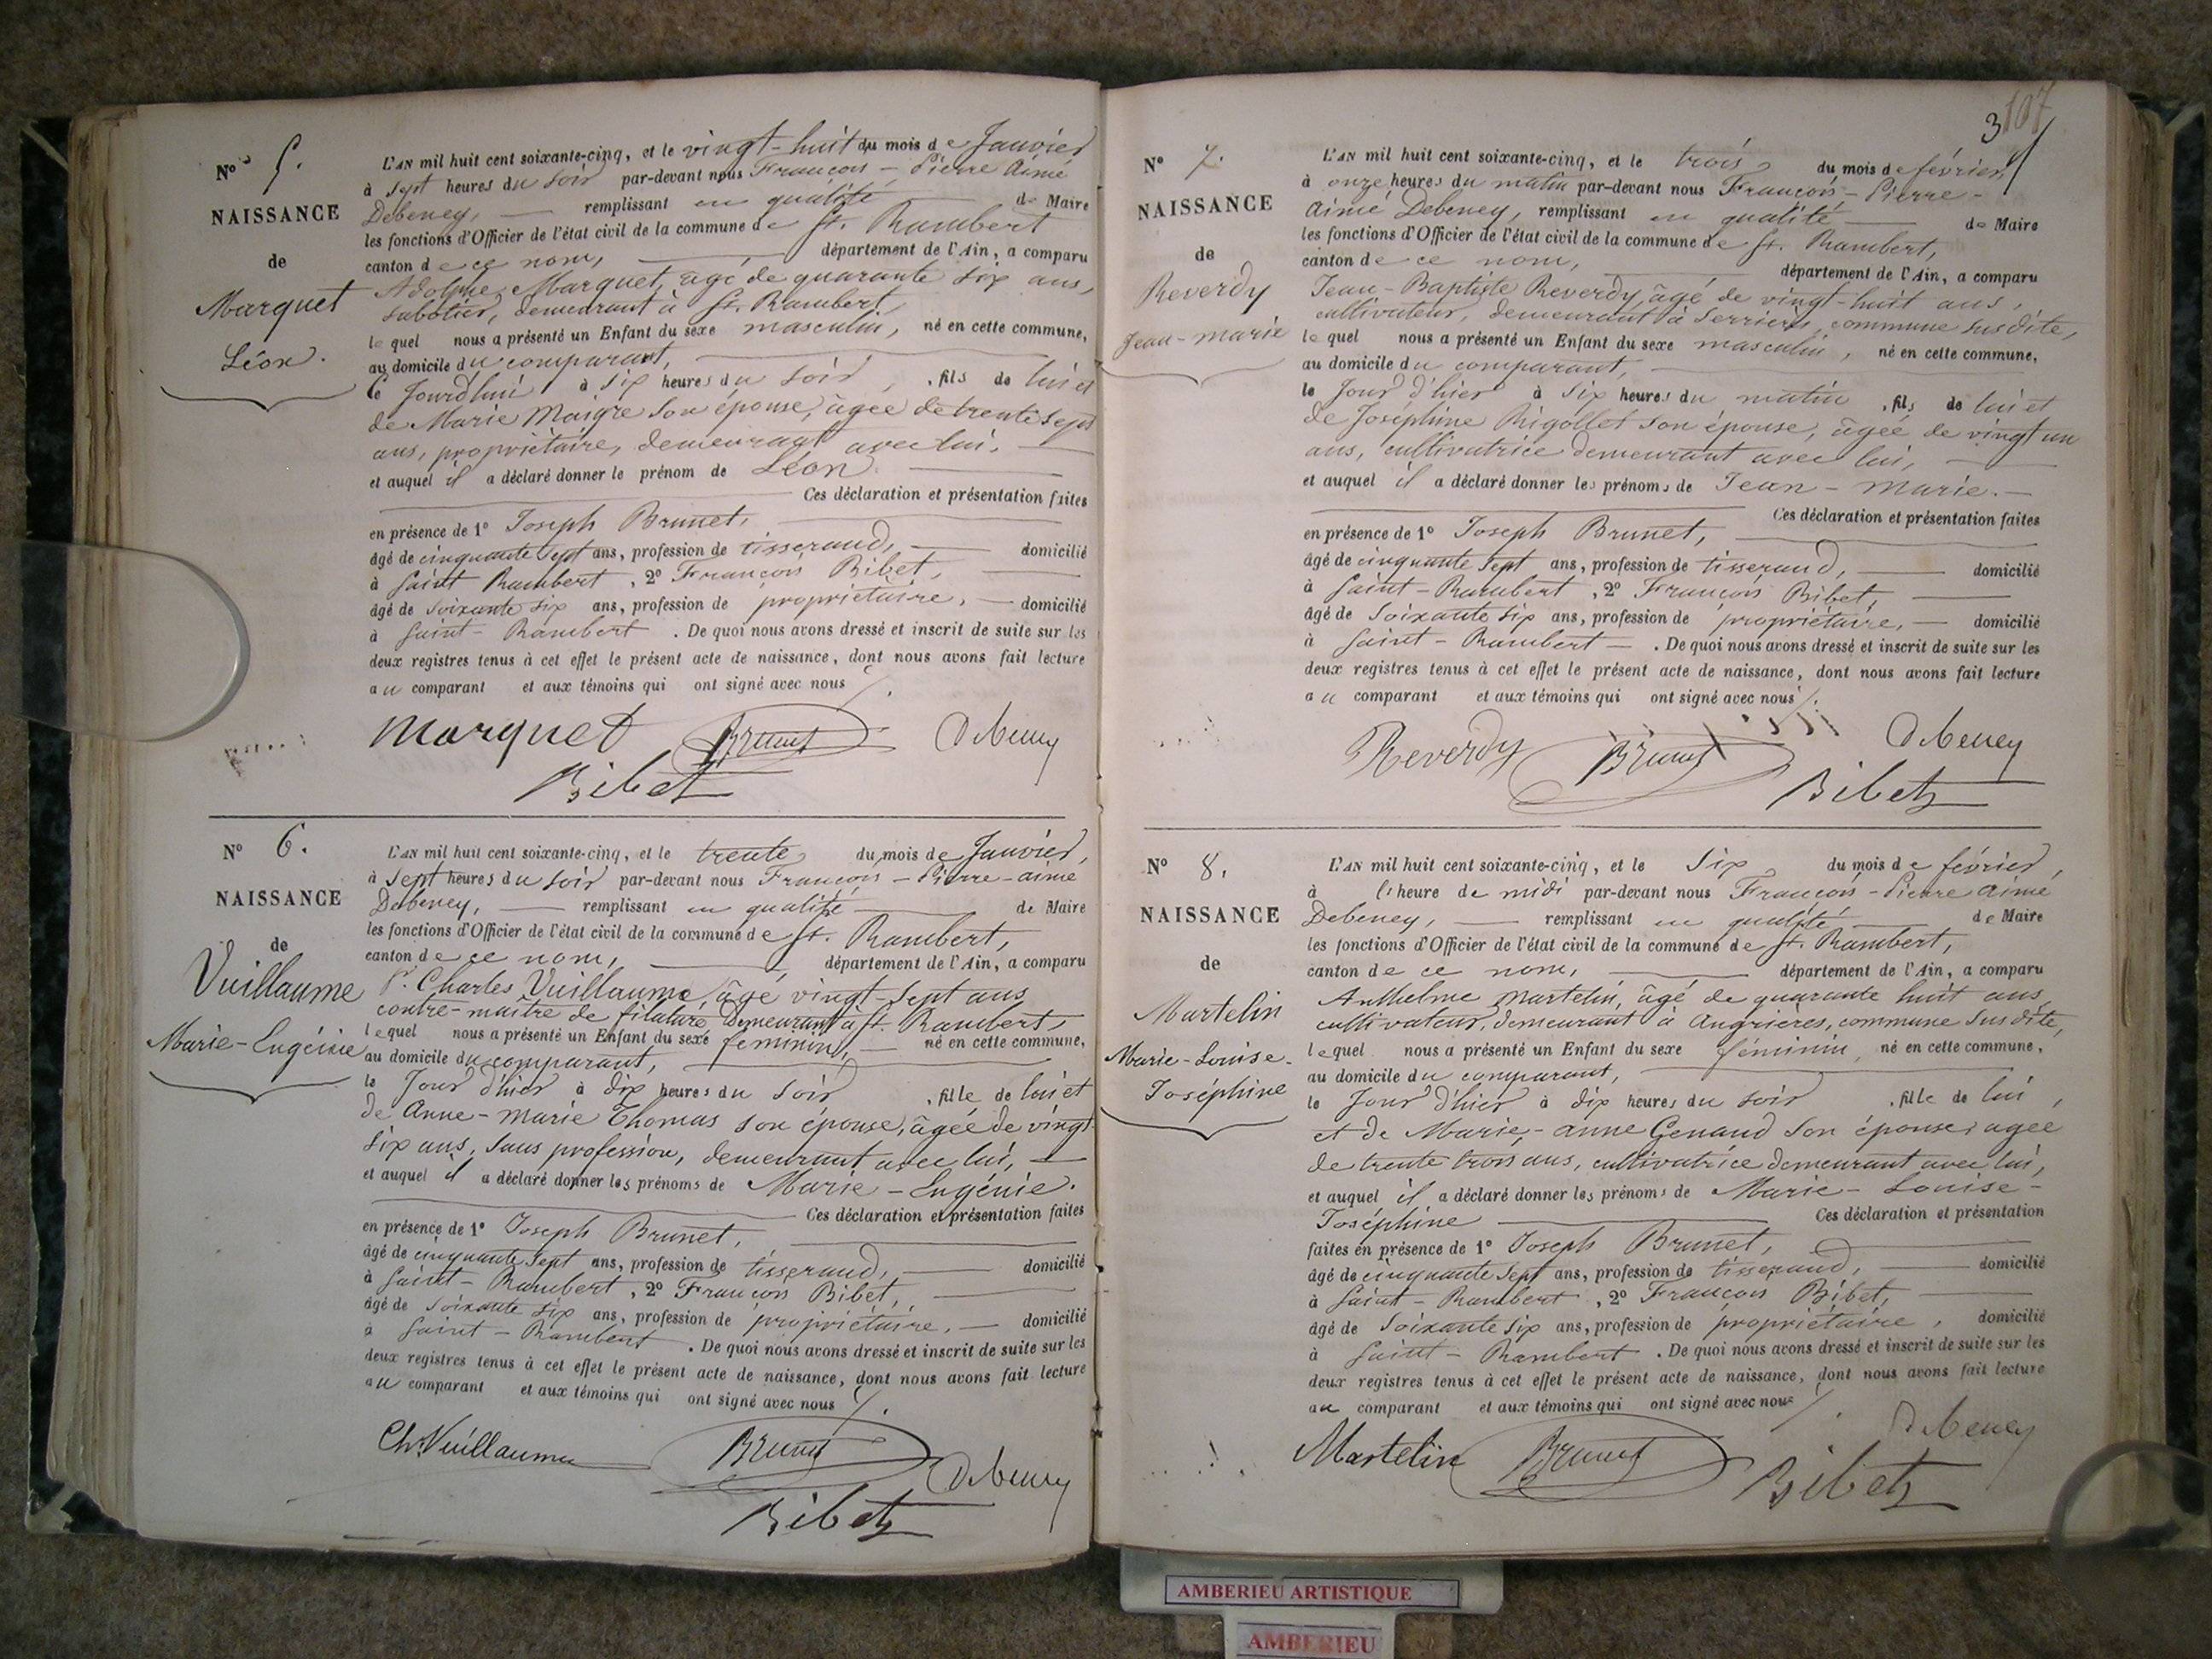 N° 5.
NAISSANCE
de
Marquet
Léon.
L'AN mil huit cent soixante-cinq, et le vingt-huit du mois de Janvier
à Sept heures du soir par-devant nous François-Pierre Aimé
Debeney, remplissant en qualité de Maire
les fonctions d'Officier de l'état civil de la commune de St. Rambert
canton de ce nom, département de l'Ain, a comparu
Adolphe Marquet, âgé de quarante six ans,
sabotier, demeurant à St. Rambert,
lequel nous a présenté un Enfant du sexe masculin, né en cette commune,
au domicile du comparant,
Ce Jourd'hui à six heures du soir, fils de lui et
de Marie Maigre son épouse, âgée de trente sept
ans, propriétaire, demeurant avec lui,
et auquel il a déclaré donner le prénom de Léon.
Ces déclaration et présentation faites
en présence de 1° Joseph Brunet,
âgé de cinquante sept ans, profession de tisserand, domicilié
à Saint Rambert, 2° François Bibet,
âgé de soixante six ans, profession de propriétaire, domicilié
à Saint-Rambert. De quoi nous avons dressé et inscrit de suite sur les
deux registres tenus à cet effet le présent acte de naissance, dont nous avons fait lecture
au comparant et aux témoins qui ont signé avec nous
Marquet Brunet Debeney
Bibet
N° 6.
NAISSANCE
de
Vuillaume
Marie-Eugénie
L'AN mil huit cent soixante-cinq, et le trente du mois de Janvier,
à Sept heures du soir par-devant nous François-Pierre-aimé
Debeney, remplissant en qualité de Maire
les fonctions d'Officier de l'état civil de la commune de St. Rambert,
canton de ce nom, département de l'Ain, a comparu
Charles Vuillaume, âgé vingt-sept ans
contre-maître de filature demeurant à St. Rambert,
lequel nous a présenté un Enfant du sexe féminin, né en cette commune,
au domicile du comparant,
le Jour d'hier à dix heures du soir, fille de lui et
de Anne-Marie Thomas son épouse, âgée de vingt
six ans, sans profession, demeurant avec lui,
et auquel il a déclaré donner les prénoms de Marie-Eugénie.
Ces déclaration et présentation faites
en présence de 1° Joseph Brunet,
âgé de cinquante sept ans, profession de tisserand, domicilié
à Saint-Rambert, 2° François Bibet,
âgé de soixante six ans, profession de propriétaire, domicilié
à Saint-Rambert. De quoi nous avons dressé et inscrit de suite sur les
deux registres tenus à cet effet le présent acte de naissance, dont nous avons fait lecture
au comparant et aux témoins qui ont signé avec nous
Ch. Vuillaume Brunet Debeney
Bibet
3 107
N° 7.
NAISSANCE
de
Reverdy
Jean-marie
L'AN mil huit cent soixante-cinq, et le trois du mois de février,
à onze heures du matin par-devant nous François-Pierre-
Aimé Debeney, remplissant en qualité de Maire
les fonctions d'Officier de l'état civil de la commune de St. Rambert,
canton de ce nom, département de l'Ain, a comparu
Jean-Baptiste Reverdy, âgé de vingt-huit ans,
cultivateur, demeurant à Serrières, commune susdite,
lequel nous a présenté un Enfant du sexe masculin, né en cette commune,
au domicile du comparant,
le Jour d'hier à six heures du matin, fils de lui et
de Joséphine Rigollet son épouse, âgée de vingt un
ans, cultivatrice demeurant avec lui,
et auquel il a déclaré donner les prénoms de Jean-Marie.
Ces déclaration et présentation faites
en présence de 1° Joseph Brunet,
âgé de cinquante sept ans, profession de tisserand, domicilié
à Saint-Rambert, 2° François Bibet,
âgé de soixante six ans, profession de propriétaire, domicilié
à Saint-Rambert. De quoi nous avons dressé et inscrit de suite sur les
deux registres tenus à cet effet le présent acte de naissance, dont nous avons fait lecture
au comparant et aux témoins qui ont signé avec nous
Reverdy Brunet Debeney
Bibet
N° 8.
NAISSANCE
de
Martelin
Marie-Louise-
Joséphine
L'AN mil huit cent soixante-cinq, et le Six du mois de février,
à l'heure de midi par-devant nous François-Pierre aimé
Debeney, remplissant en qualité de Maire
les fonctions d'Officier de l'état civil de la commune de St. Rambert,
canton de ce nom, département de l'Ain, a comparu
Anthelme Martelin, âgé de quarante huit ans
cultivateur, demeurant à Angrières, commune susdite,
lequel nous a présenté un Enfant du sexe féminin, né en cette commune,
au domicile du comparant,
le Jour d'hier à dix heures du soir, fille de lui,
et de Marie-anne Genaud son épouse, agée
de trente trois ans, cultivatrice demeurant avec lui,
et auquel il a déclaré donner les prénoms de Marie-Louise-
Joséphine Ces déclaration et présentation
faites en présence de 1° Joseph Brunet,
âgé de cinquante sept ans, profession de tisserand, domicilié
à Saint-Rambert, 2° François Bibet,
âgé de soixante six ans, profession de propriétaire, domicilié
à Saint-Rambert. De quoi nous avons dressé et inscrit de suite sur les
deux registres tenus à cet effet le présent acte de naissance, dont nous avons fait lecture
au comparant et aux témoins qui ont signé avec nous
Martelin Brunet Debeney
Bibet
AMBERIEU ARTISTIQUE
AMBERIEU